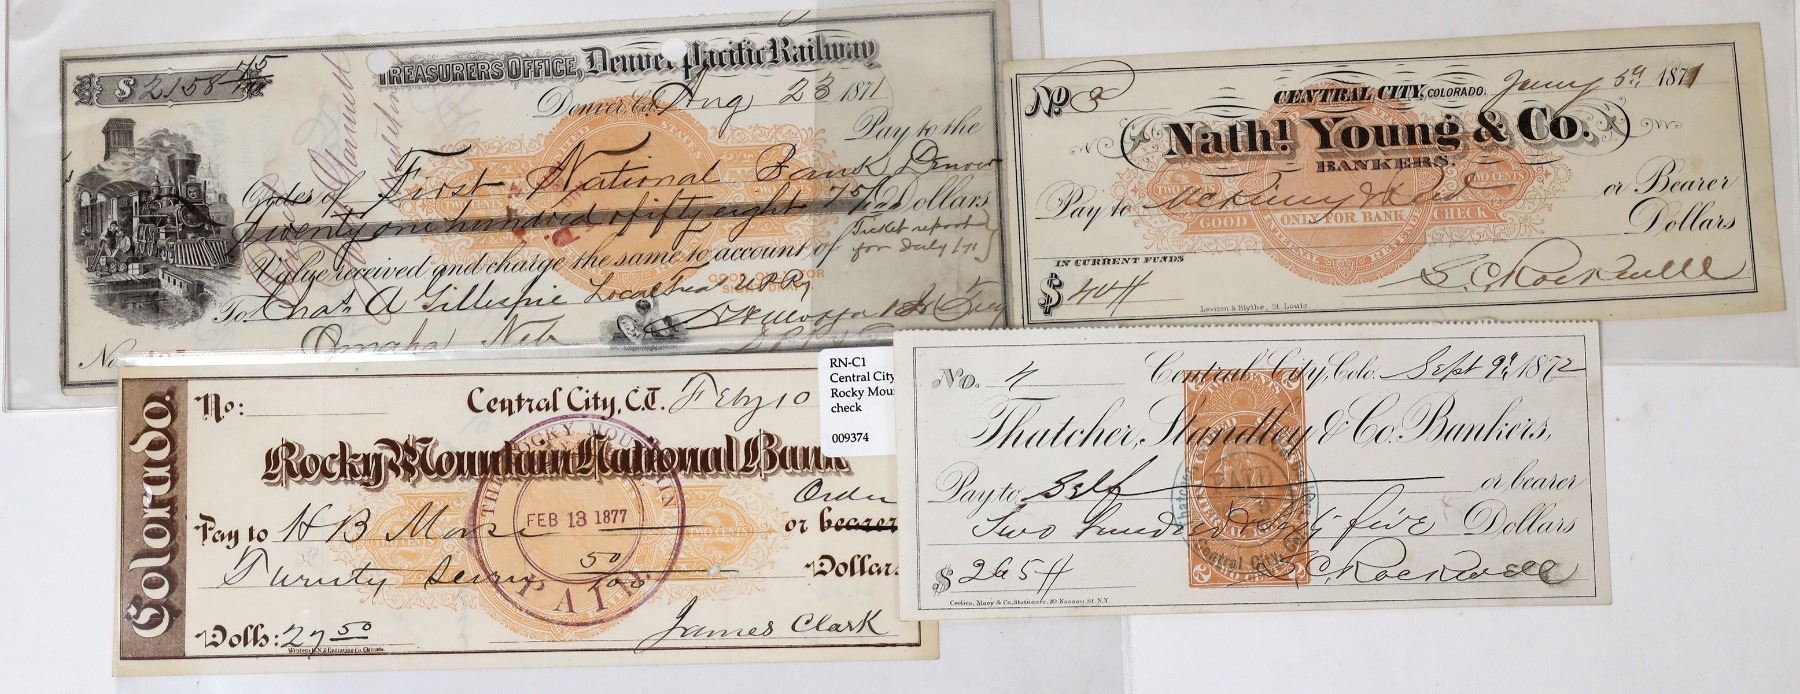 $ 2158 75/100
TREASURERS OFFICE, Denver Pacific Railway
Denver Col. Aug 23 1871
Pay to the
Order of First National Bank Denver
Twenty one hundred & fifty eight 75/100 Dollars
Ticket report
for July /71
Value received and charge the same to account of
GOOD ONLY FOR
SIGHT DRAFT
To Chas A Gillespie Local Treas U.P.Ry
Omaha Neb
No.
UNITED STATES
TWO CENTS
TWO CENTS
No. 3
CENTRAL CITY, COLORADO. Jany 5th 1871
Nathl. Young & Co.
BANKERS.
Pay to or Bearer
Dollars
TWO CENTS
TWO CENTS
GOOD ONLY FOR BANK CHECK
INTERNAL REVENUE
IN CURRENT FUNDS
$ 40
S. C. Rockwell
Levison & Blythe, St. Louis
Colorado.
No:
Central City, C.T. Feby 10
Rocky Mountain National Bank
Pay to H B Morse Order
or bearer
Twenty seven 50/100 Dollars
THE ROCKY MOUNTAIN
FEB 13 1877
PAID
James Clark
Dolls: 27 50
Western B.N. & Engraving Co. Chicago.
RN-C1
Central City
Rocky Moun
check
009374
No. 4 Central City, Colo. Sept 9th 1872
Thatcher, Standley & Co. Bankers,
Pay to Self or bearer
Two hundred & sixty five Dollars
PAID
Central City, Col.
$ 265
S. C. Rockwell
Corlies, Macy & Co. Stationers, 39 Nassau St. N.Y.